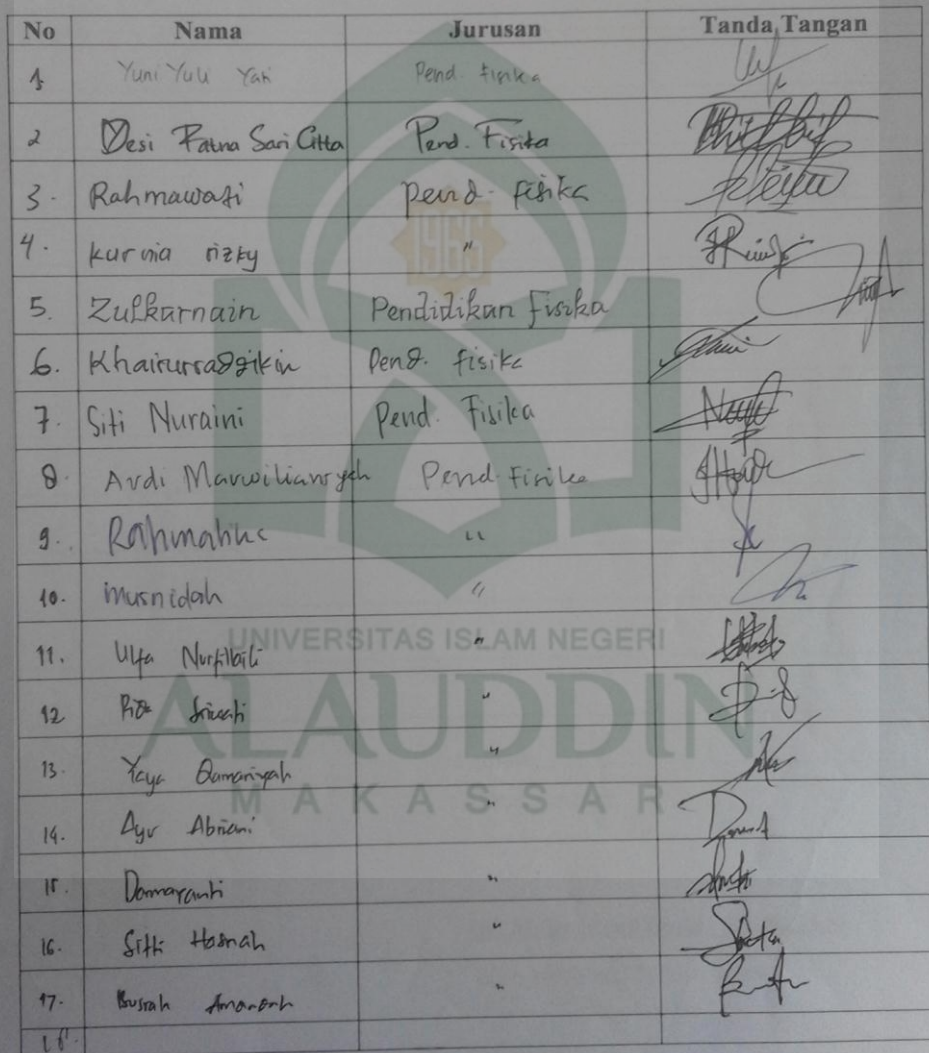 No Nama Jurusan Tanda Tangan
1 Yuni Yuli Yati Pend fisika
2 Desi Ratna Sari Citta Pend. Fisika
3. Rahmawati pend. fisika
4. kurnia rizky "
5. Zulkarnain Pendidikan Fisika
6. Khairurraziikin Pend. fisika
7. Siti Nuraini Pend. Fisika
8. Ardi Marwiliansyah Pend. Fisika
9. "
10. musnidah "
11. Ulfa "
12 "
13. Yaya Qamariyah "
14. Ayu Abriani "
15. Damayanti "
16. Sitti Hasnah "
17. Busrah "
18.
1965
UNIVERSITAS ISLAM NEGERI
ALAUDDIN
MAKASSAR